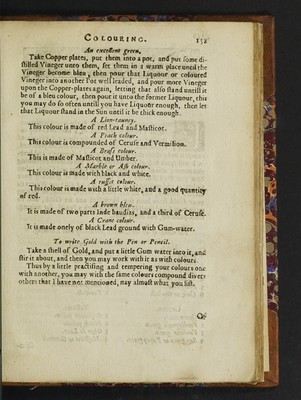 COLOURING.
152
An excellent green.
Take Copper plates, put them into a pot, and put some di-
stilled Vineger unto them, set them in a warm place until the
Vineger become bleu, then pour that Liquour or coloured
Vineger into another Pot well leaded, and pour more Vineger
upon the Copper-plates again, letting that also stand untill it
be of a bleu colour, then pour it unto the former Liquour, this
you may do so often untill you have Liquour enough, then let
that Liquour stand in the Sun until it be thick enough.
A Lion-tawney.
This colour is made of red Lead and Masticot.
A Peach colour.
This colour is compounded of Ceruse and Vermilion.
A Brass colour.
This is made of Masticot and Umber.
A Marble or Ash colour.
This colour is made with black and white.
A russet colour.
This colour is made with a little white, and a good quantity
of red.
A brown bleu.
It is made of two parts Inde baudias, and a third of Ceruse.
A Crane colour.
It is made onely of black Lead ground with Gum-water.
To write Gold with the Pen or Pencil.
Take a shell of Gold, and put a little Gum water into it, and
stir it about, and then you may work with it as with colours.
Thus by a little practising and tempering your colours one
with another, you may with the same colours compound divers
others that I have not mentioned, nay almost what you list.
Of